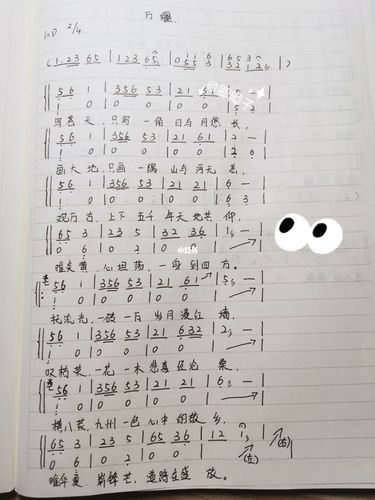 万疆
1=D 2/4
( 1.23 65 | 123 65 | 0116 | 6536 | )
56 1 | 356 53 | 21 61 |
1 0 | 0 0 | 0 0 |
写苍天,只写一角 日与月悠长,
56 1 | 356 53 | 21 61 | 2 — |
1 0 | 0 0 | 0 0 | 2 6 |
画大地,只画一隅 山与河无恙,
56 1 | 356 53 | 21 21 | 6 — |
1 0 | 0 0 | 0 0 | 6 3 |
观万古,上下五千年天地共仰,
65 3 | 23 5 | 32 36 | 1 — |
0 6 | 0 2 | 0 6 |
唯炎黄,心坦荡,一身到四方。
56 1 | 356 53 | 21 61 | 5 — |
1 0 | 0 0 | 0 0 |
抚流光,一砖一瓦 岁月浸红墙,
56 1 | 356 53 | 21 632 | 2 — |
1 0 | 0 0 | 0 0 |
叹枯荣,一花一木 悲喜经沧桑,
56 1 | 356 53 | 21 21 | 6 — |
1 0 | 0 0 | 0 0 |
横八荒,九州一色 心中的故乡,
65 3 | 23 5 | 65 36 | 12 1
0 6 | 0 2 | 0 6 |
(左)
(右)
唯华夏,崭锋芒,道路在盛放。
小红书